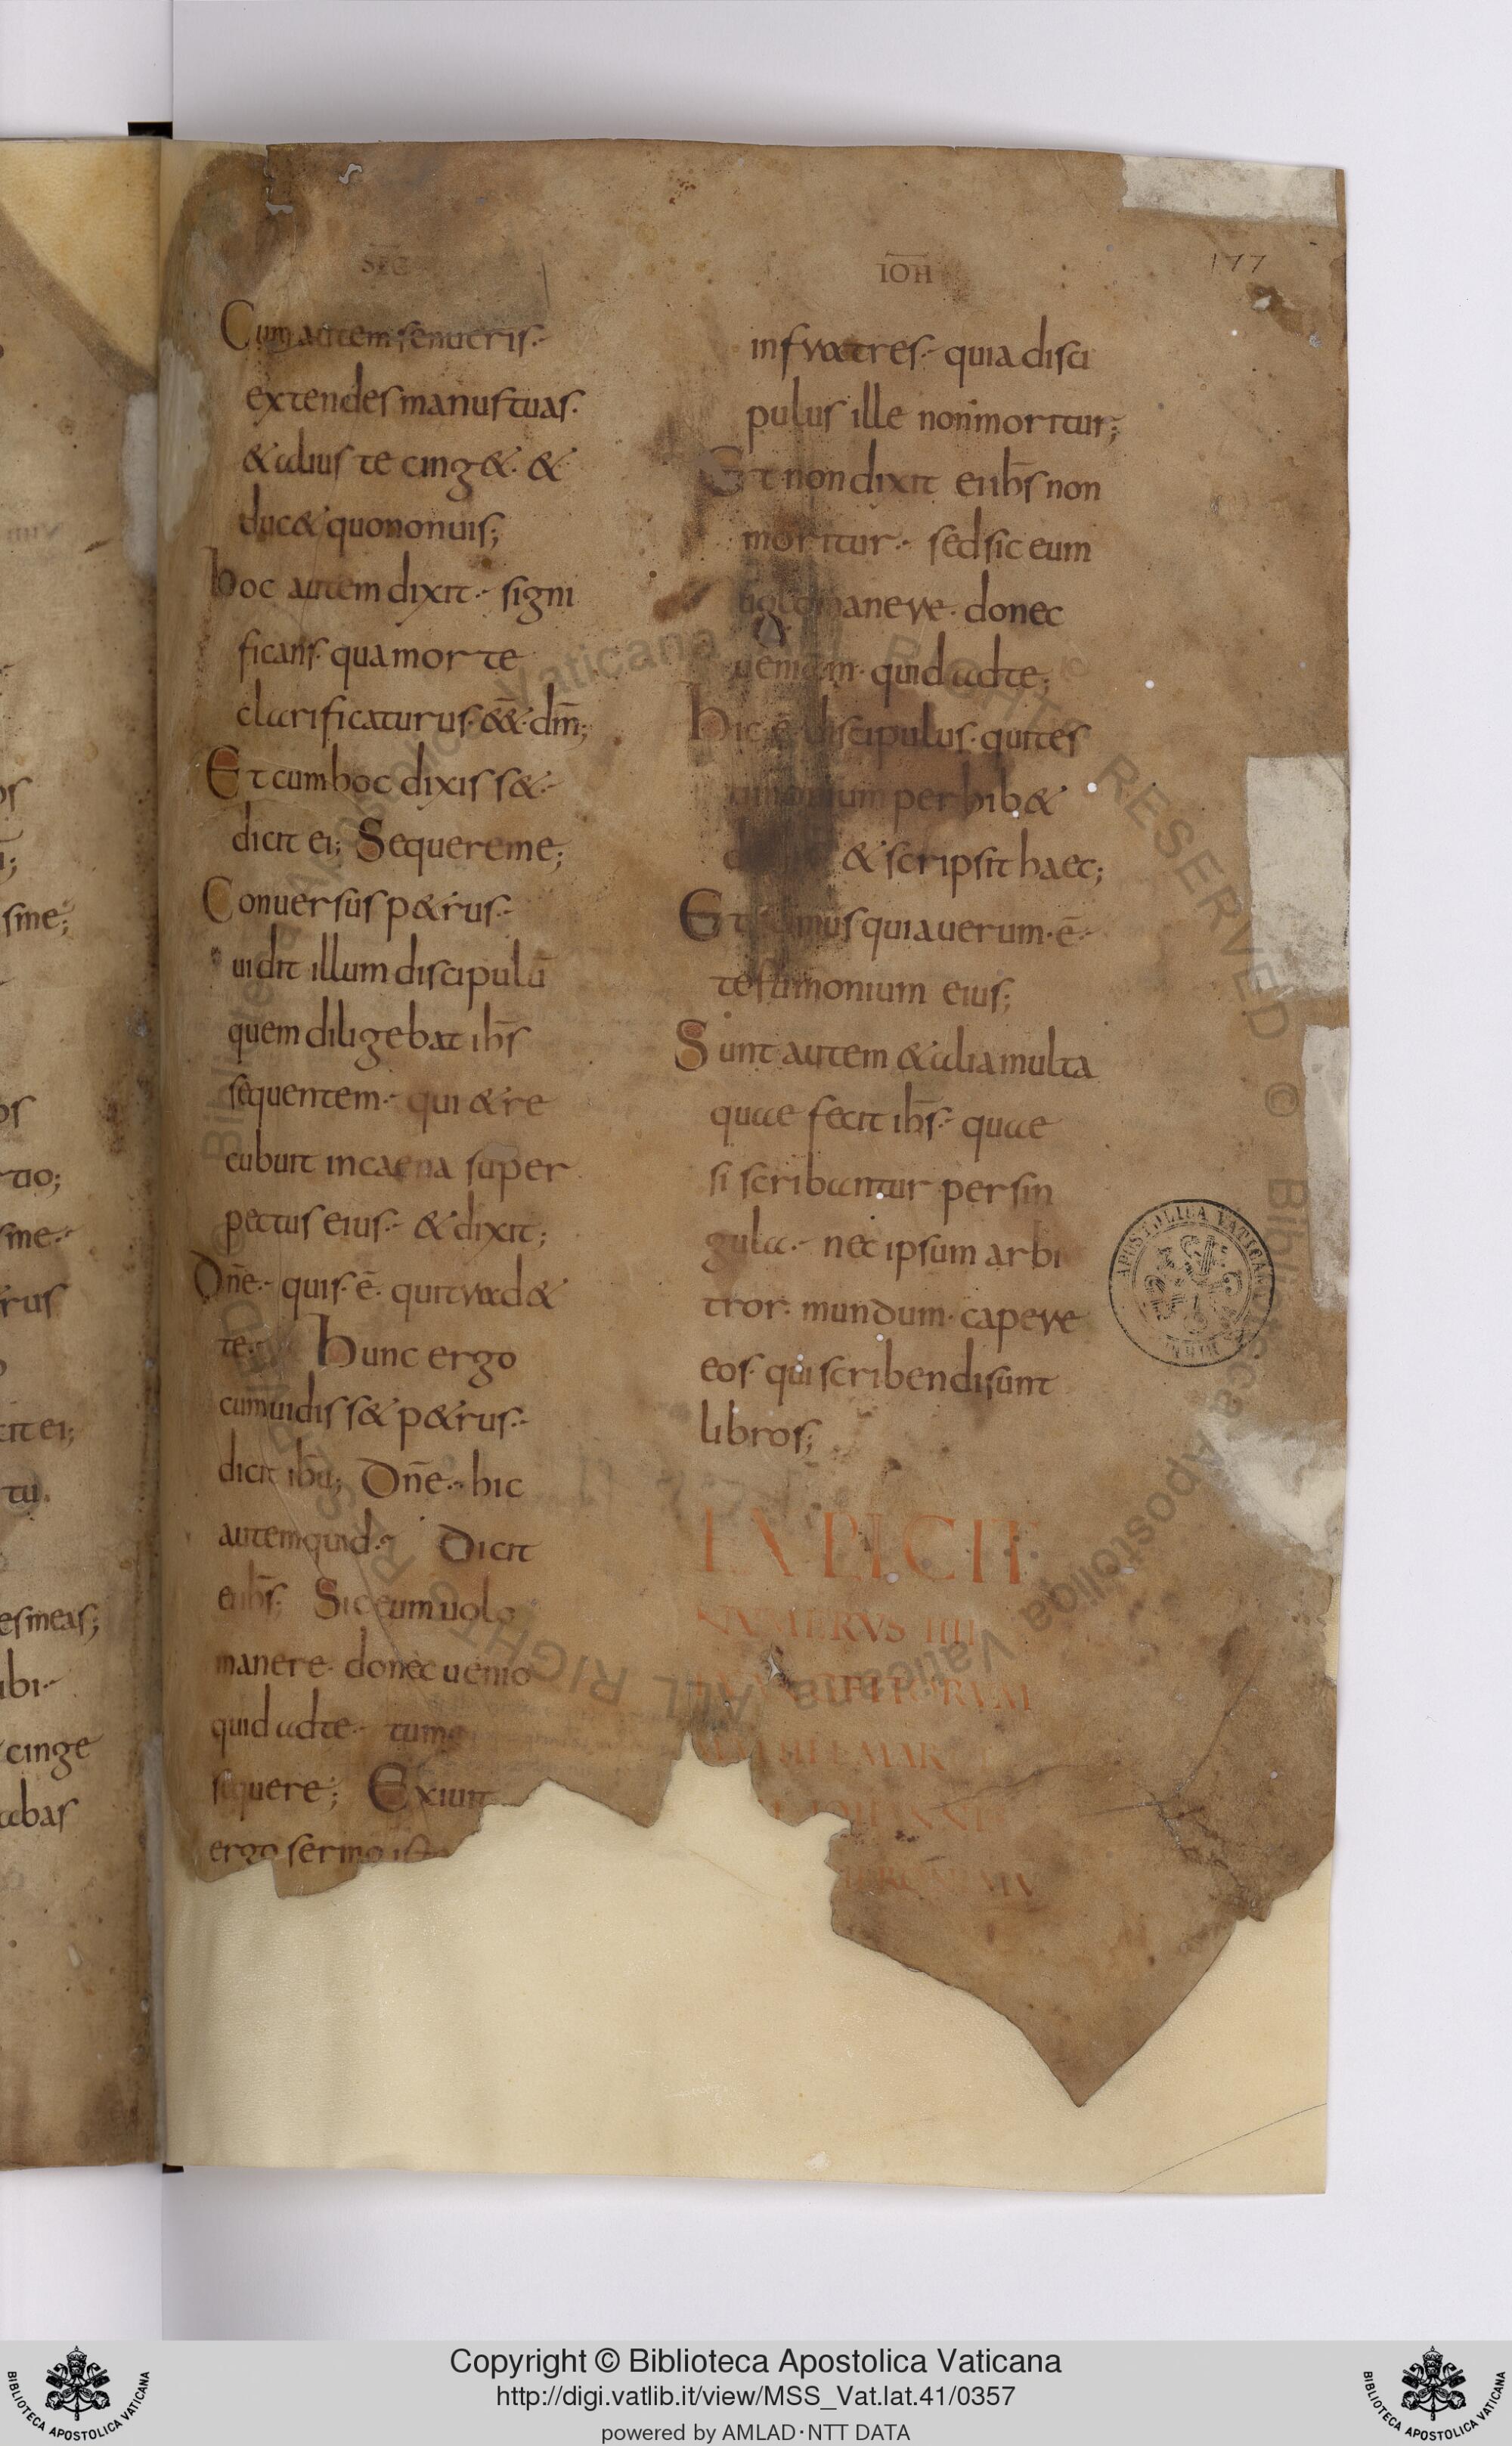 SEC
IOH
177
Cum autem senueris·-
extendes manus tuas·
& alius te cing&· &
duc& quo non uis;
hoc autem dixit·- signi
ficans· qua morte
clarificaturus· ē&· dm̄;
Et cum hoc dixiss&·-
dicit ei; Sequere me;
Conuersus p&rus·-
uidit illum discipulū
quem diligebat ihs̄
sequentem·- qui & re
cubuit in caena super
pectus eius·- & dixit;
Dn̄e·- quis· ē· qui trad&
te·- hunc ergo
cum uidiss& p&rus·-
dicit ihū; Dn̄e·- hic
autem quid·- Dicit
ei ihs̄; Sic eum uolo
manere· donec uenio
quid ad te·- tu me
sequere; Exiuit
ergo sermo iste
in fratres·- quia disci
pulus ille non moritur;
Et non dixit ei ihs̄ non
moritur·- sed sic eum
uolo manere· donec
ueniam· quid ad te;
hic ē discipulus· qui tes
timonium perhib&
& scripsit haec;
Et scimus quia uerum· ē·-
testimonium eius;
Sunt autem & alia multa
quae fecit ihs̄·- quae
si scribantur per sin
gula·- nec ipsum arbi
tror· mundum· capere
eos· qui scribendi sunt
libros;
EXPLICIT
NUMERVS IIII
Copyright © Biblioteca Apostolica Vaticana
http://digi.vatlib.it/view/MSS_Vat.lat.41/0357
powered by AMLAD·NTT DATA